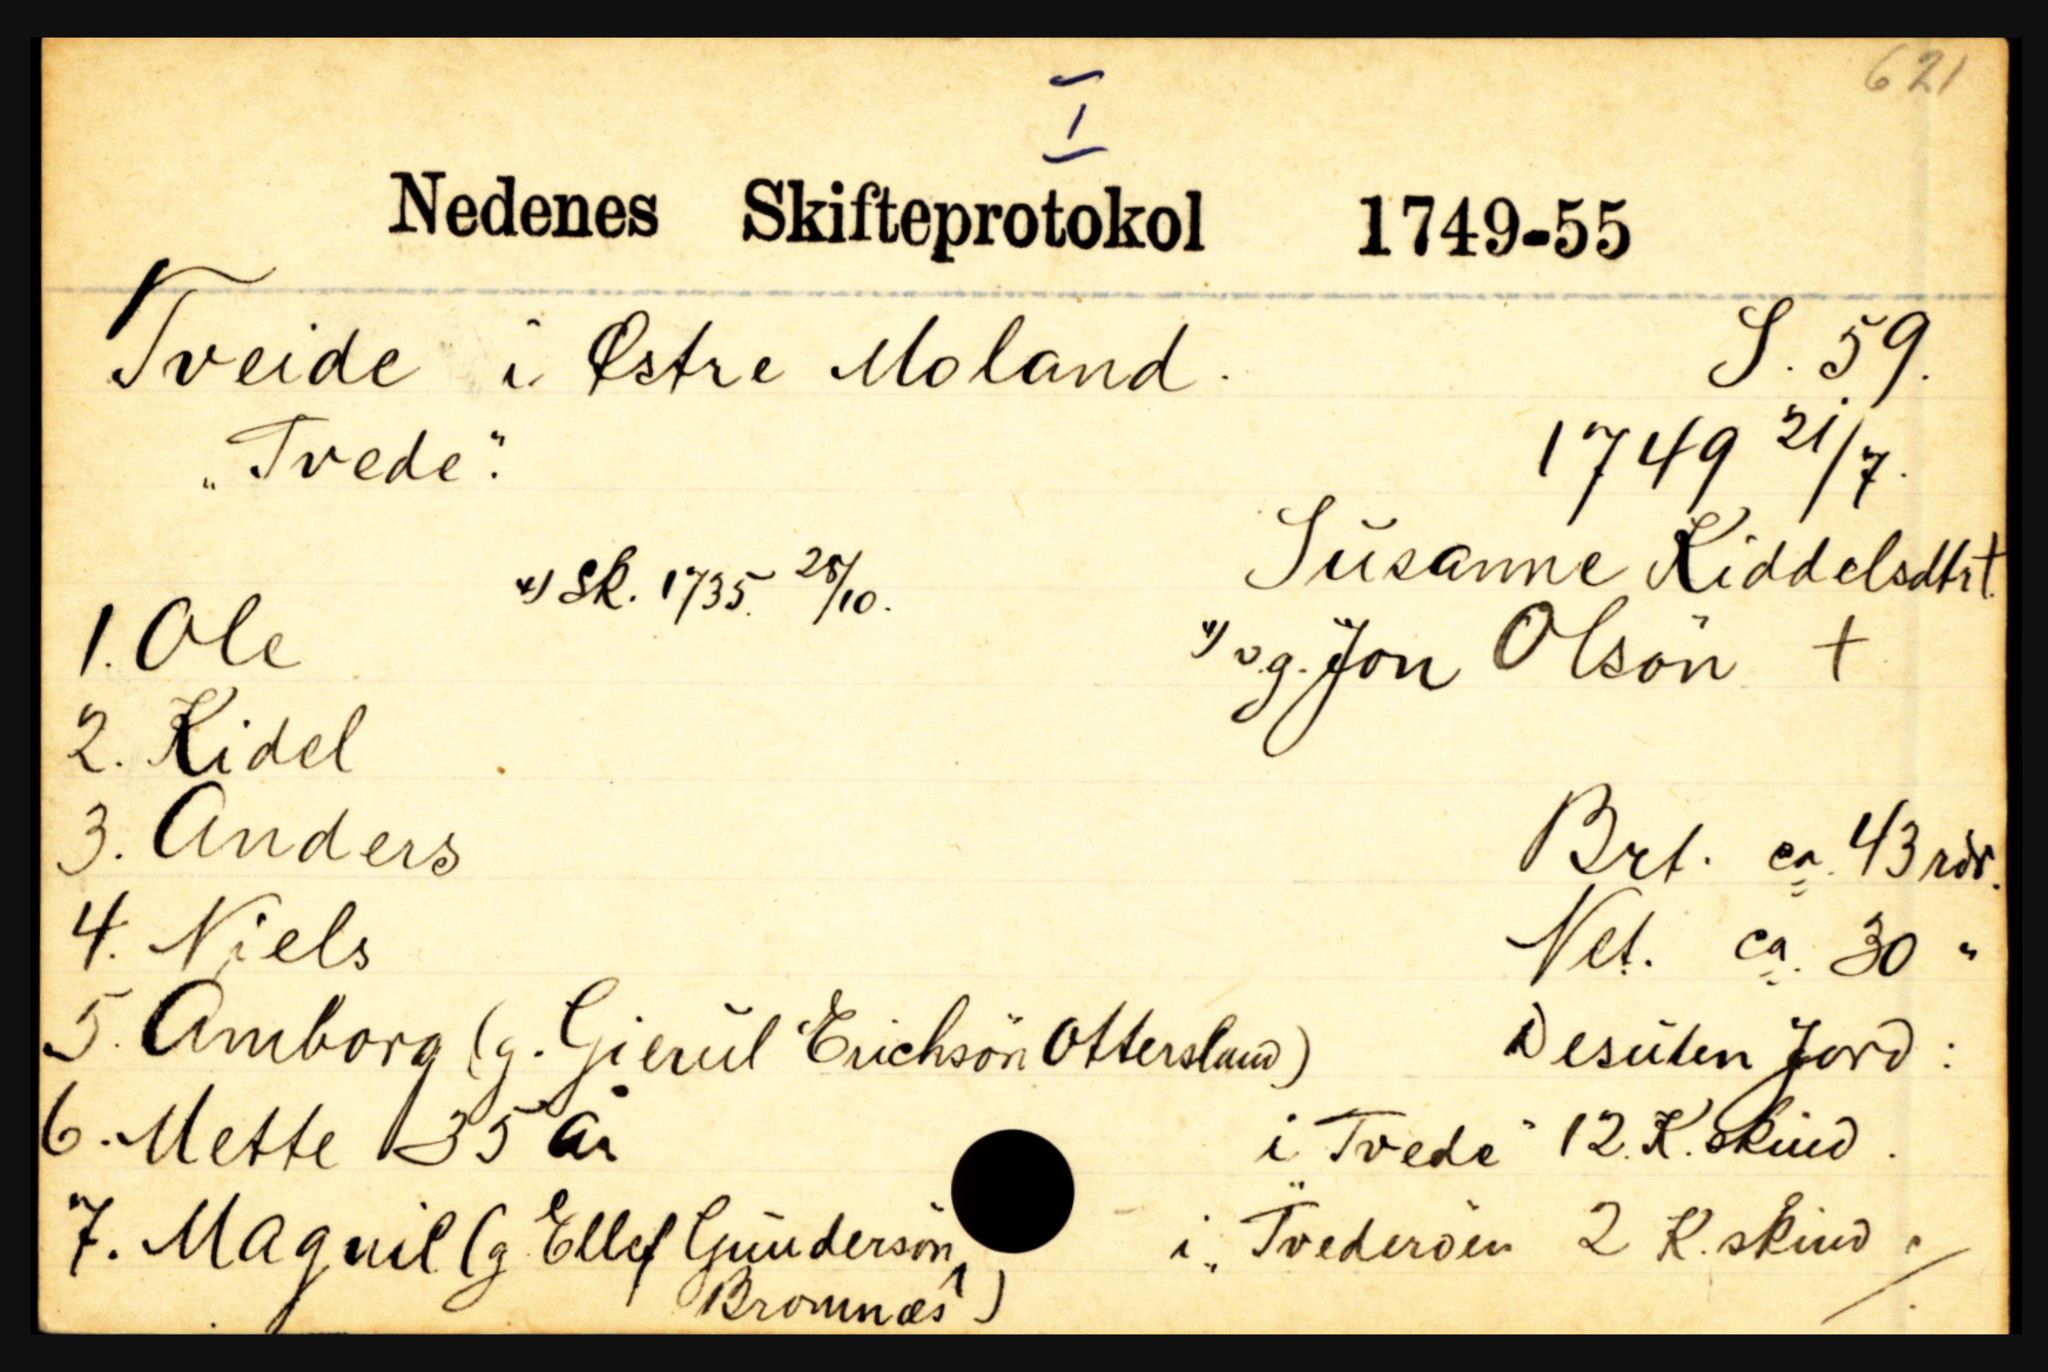 621
I
Nedenes Skifteprotokol 1749-55
Tveide i Østre Moland. S. 59.
„Tvede". 1749 21/7.
Susanne Kiddelsdtr †.
*) Sk. 1735. 28/10.
1. Ole *) v.g. Jon Olsön †
2. Kidel
3. Anders Brt. ca. 43 rdr.
4. Niels Net. ca. 30 "
5. Amborg (g. Gierul Erichsön Ottersland) Desuten Jord:
6. Mette 35 år i „Tvede" 12 K. skind.
7. Magnil (g Ellef Gundersön, i „Tvederöen 2 K. skind.
Bromnæs)